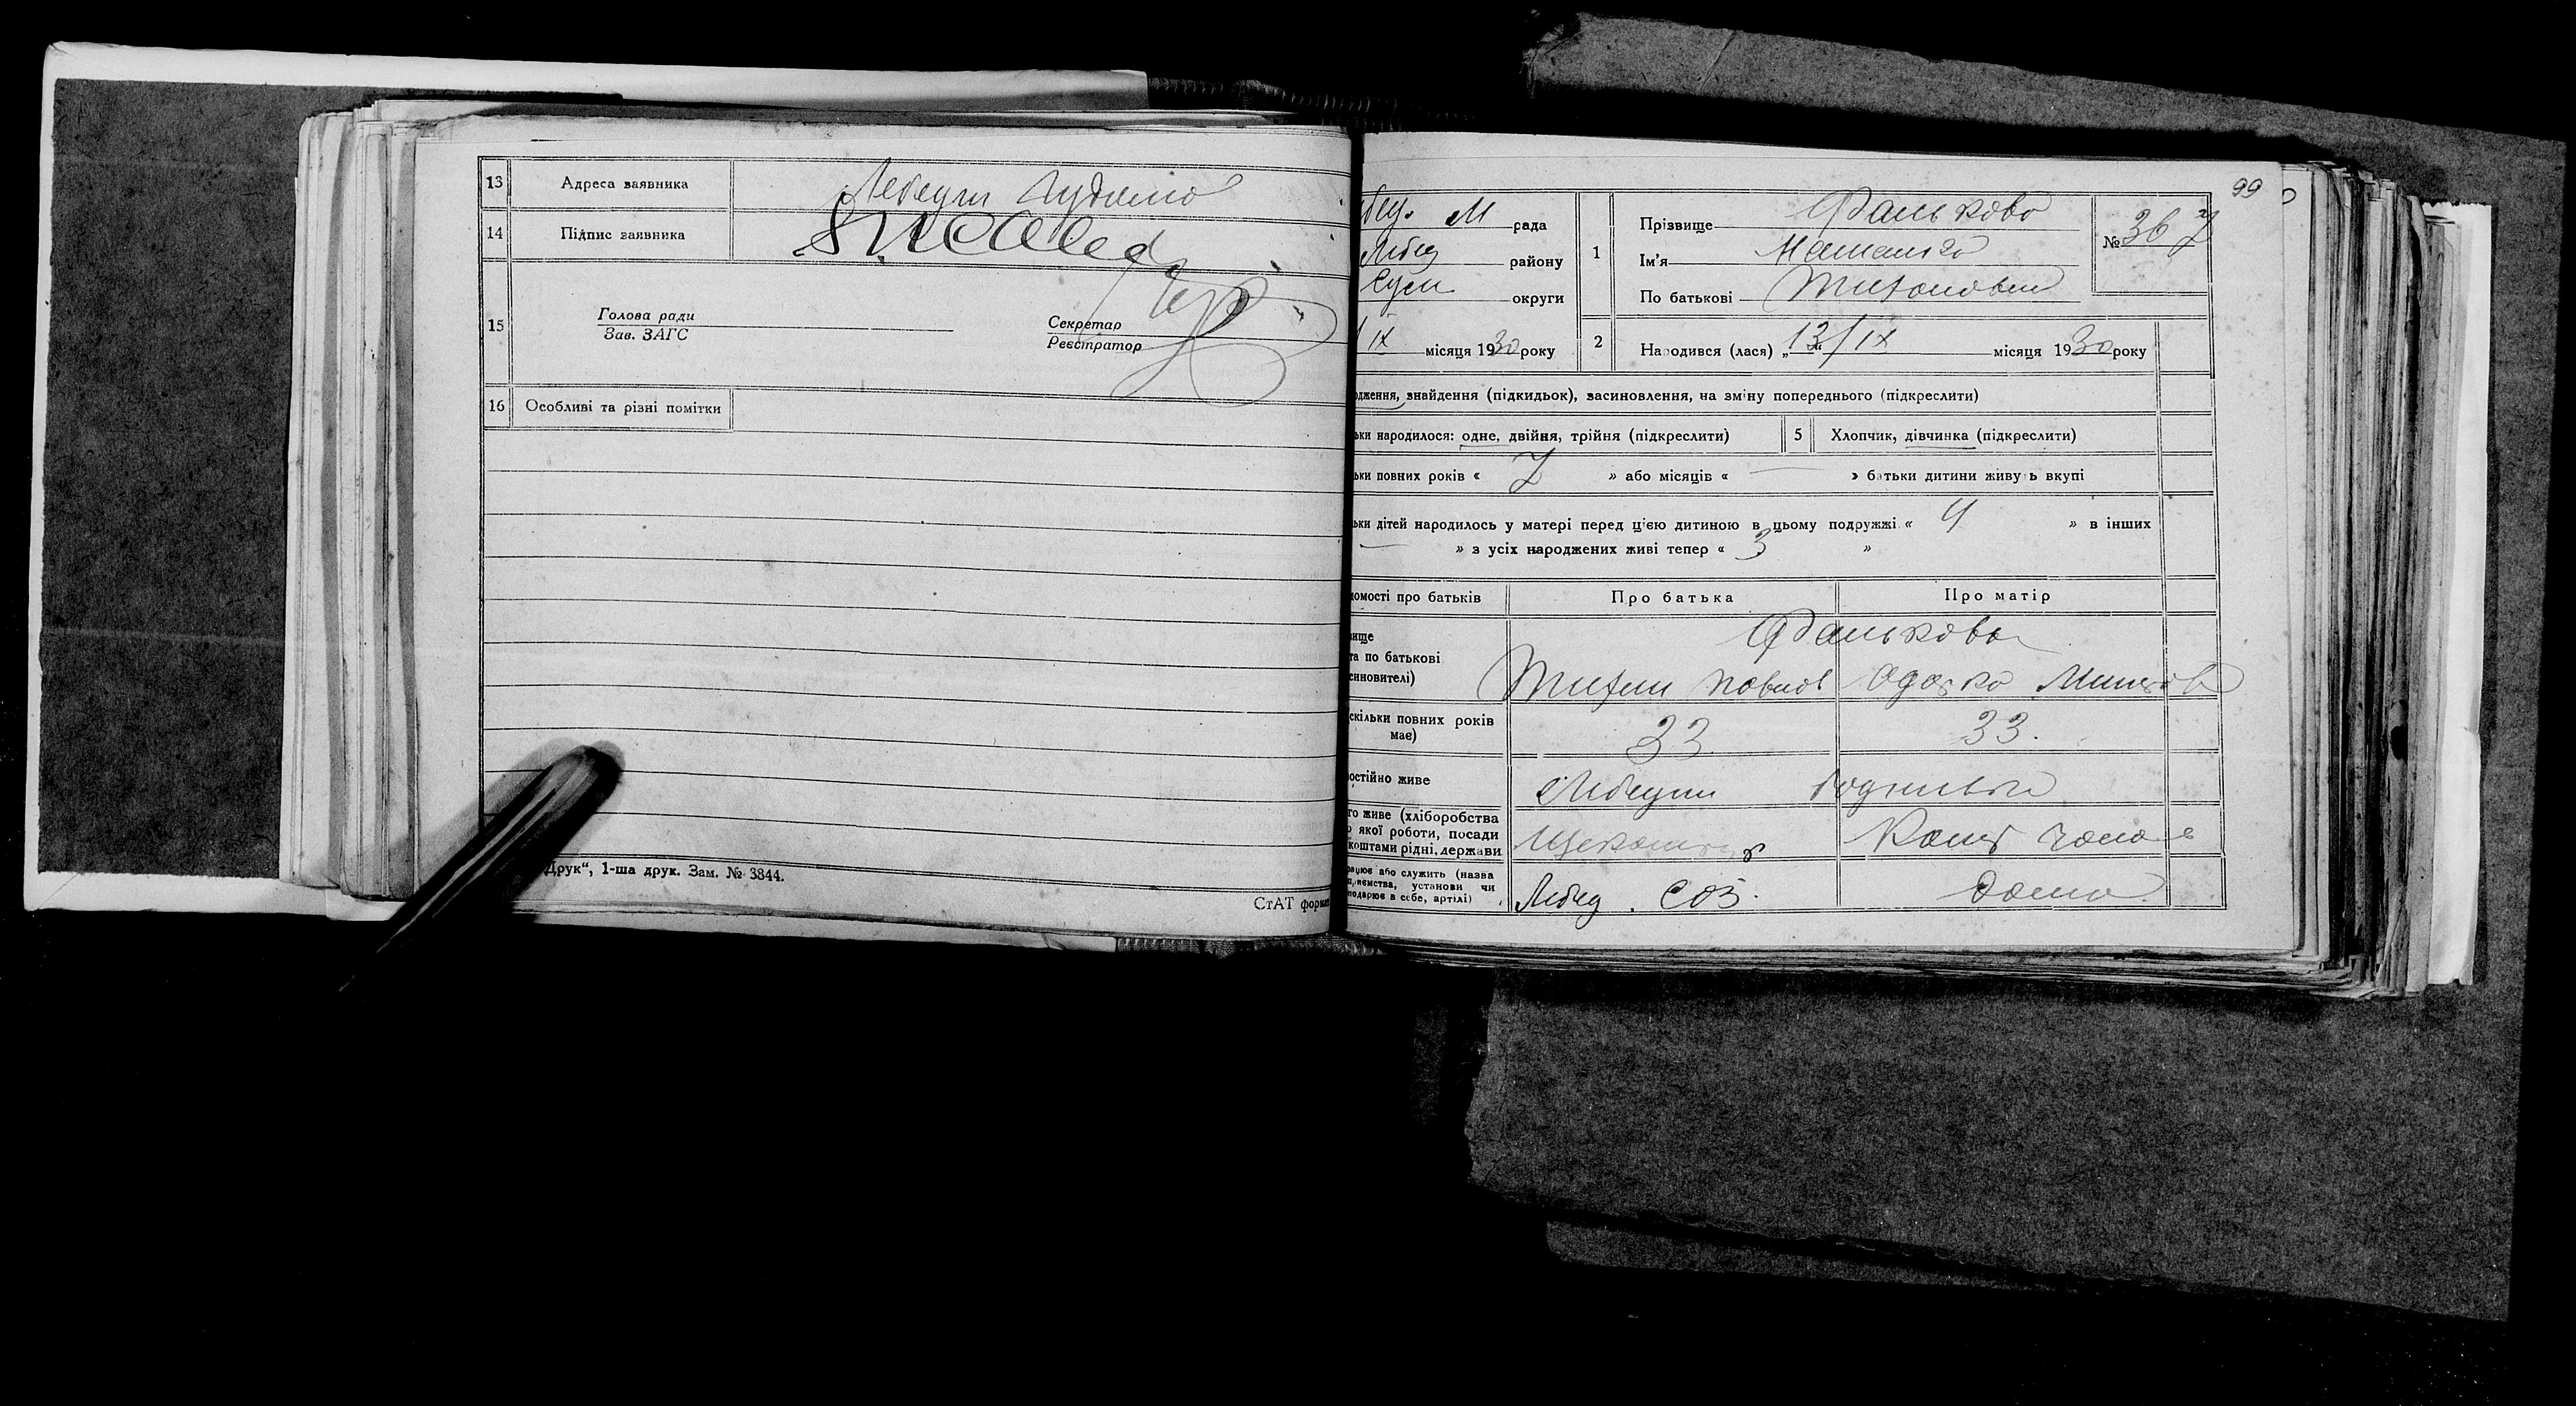 13 Адреса заявника Лебедин
14 Підпис заявника
15 Голова ради
Зав. ЗАГС
Секретар
Реєстратор
16 Особливі та різні помітки
Друк“, 1-ша друк. Зам. № 3844.
СтАТ форма
99
М рада
Лебед району
Сум округи
IX місяця 1930 року
1 Прізвище Фалькова
Ім'я Наталія
По батькові Тихоновна
№ 367
2 Народився (лася) „13“/IX місяця 1930 року
одження, знайдення (підкидьок), засиновлення, на зміну попереднього (підкреслити)
ьки народилося: одне, двійня, трійня (підкреслити) 5 Хлопчик, дівчинка (підкреслити)
ьки повних років « 7 » або місяців « — » батьки дитини живуть вкупі
ьки дітей народилось у матері перед цією дитиною в цьому подружжі « 4 » в інших
— » з усіх народжених живі тепер « 3 »
домості про батьків Про батька Про матір
вище Фалькови
та по батькові
синовителі) Тихон Павлов Одарка
скільки повних років
має) 33 33.
остійно живе Лебедин
го живе (хліборобства
якої роботи, посади
коштами рідні, держави Кошт чолов
рацює або служить (назва
установи чи
подарює в себе, артілі) Лебед. СОЗ. дома